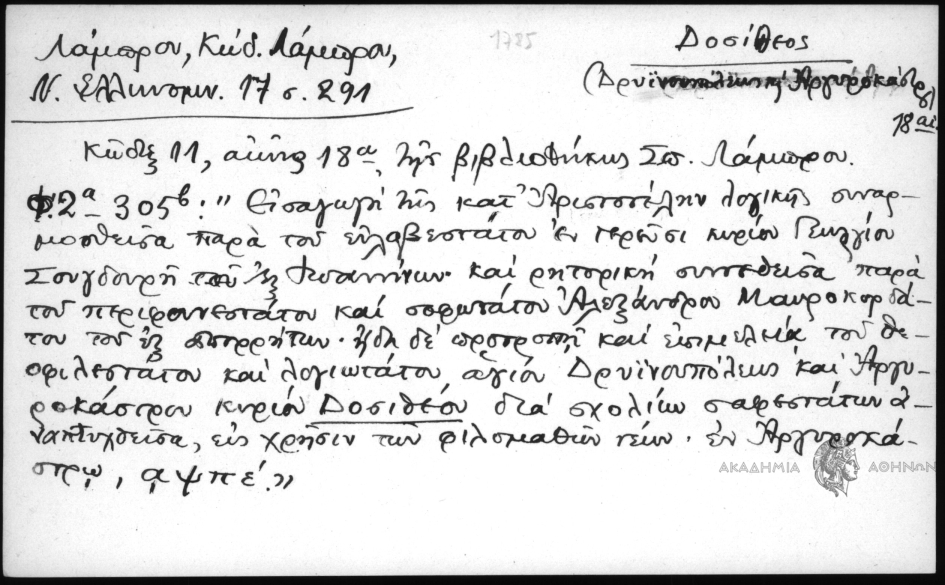 Λάμπρου, Κώδ. Λάμπρου,
Ν. Ἑλληνομν. 17 σ. 291
1785
Δοσίθεος
(Δρυϊνουπόλεως κ̣ Ἀργυροκάστρου)
18 αἰ.
Κῶδιξ 11, αἰῶνος 18ᵃ τῆς βιβλιοθήκης Σπ. Λάμπρου.
Φ. 2ᵃ 305ᵇ: "Εἰσαγωγὴ τῆς κατ' Ἀριστοτέλην λογικῆς συναρ-
μοσθεῖσα παρὰ τοῦ εὐλαβεστάτου ἐν ἱερεῦσι κυρίου Γεωργίου
Σουγδουρῆ τοῦ ἐξ Ἰωαννίνων καὶ ῥητορικὴ συντεθεῖσα παρὰ
τοῦ περιφανεστάτου καὶ σοφωτάτου Ἀλεξάνδρου Μαυροκορδά-
του τοῦ ἐξ ἀπορρήτων· ἤδη δὲ προτροπῇ καὶ ἐπιμελείᾳ τοῦ θε-
οφιλεστάτου καὶ λογιωτάτου ἁγίου Δρυϊνουπόλεως καὶ Ἀργυ-
ροκάστρου κυρίου Δοσιθέου διὰ σχολίων σαφεστάτων ἀ-
ναπτυχθεῖσα, εἰς χρῆσιν τῶν φιλομαθῶν νέων. ἐν Ἀργυροκά-
στρῳ, αψπέ."
ΑΚΑΔΗΜΙΑ ΑΘΗΝΩΝ